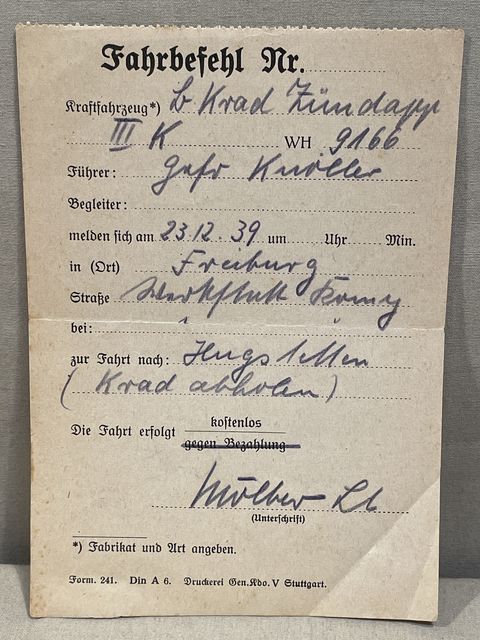 Fahrbefehl Nr.
Kraftfahrzeug*) L Krad Zündapp
III K WH 9166
Führer: Gefr Knöller
Begleiter:
melden sich am 23 12. 39 um Uhr Min.
in (Ort) Freiburg
Straße Werkstatt
bei:
zur Fahrt nach: Hugstetten
(Krad abholen)
Die Fahrt erfolgt kostenlos
gegen Bezahlung
Lt
(Unterschrift)
*) Fabrikat und Art angeben.
Form. 241. Din A 6. Druckerei Gen.Kdo. V Stuttgart.